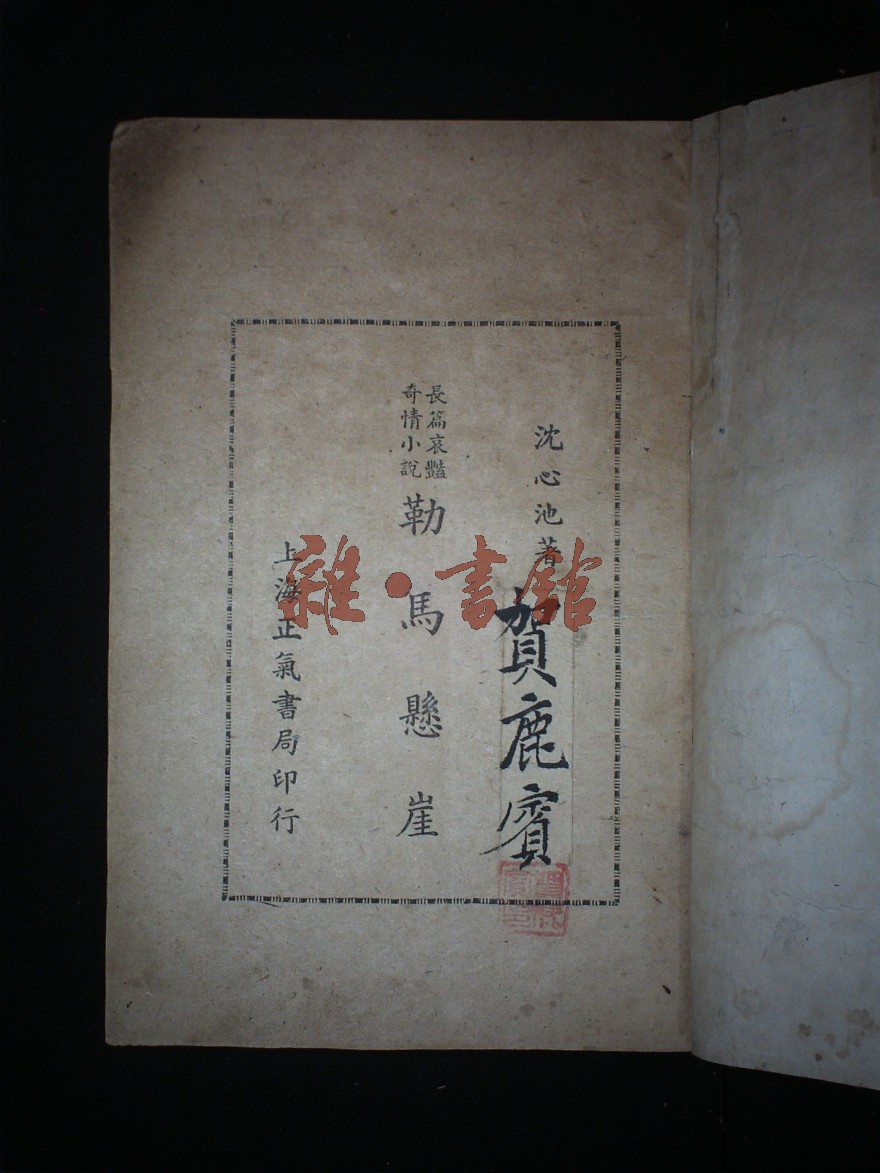 沈心池著
賀鹿賓
長篇哀豔
奇情小說
勒馬懸崖
上海正氣書局印行
雜·書館